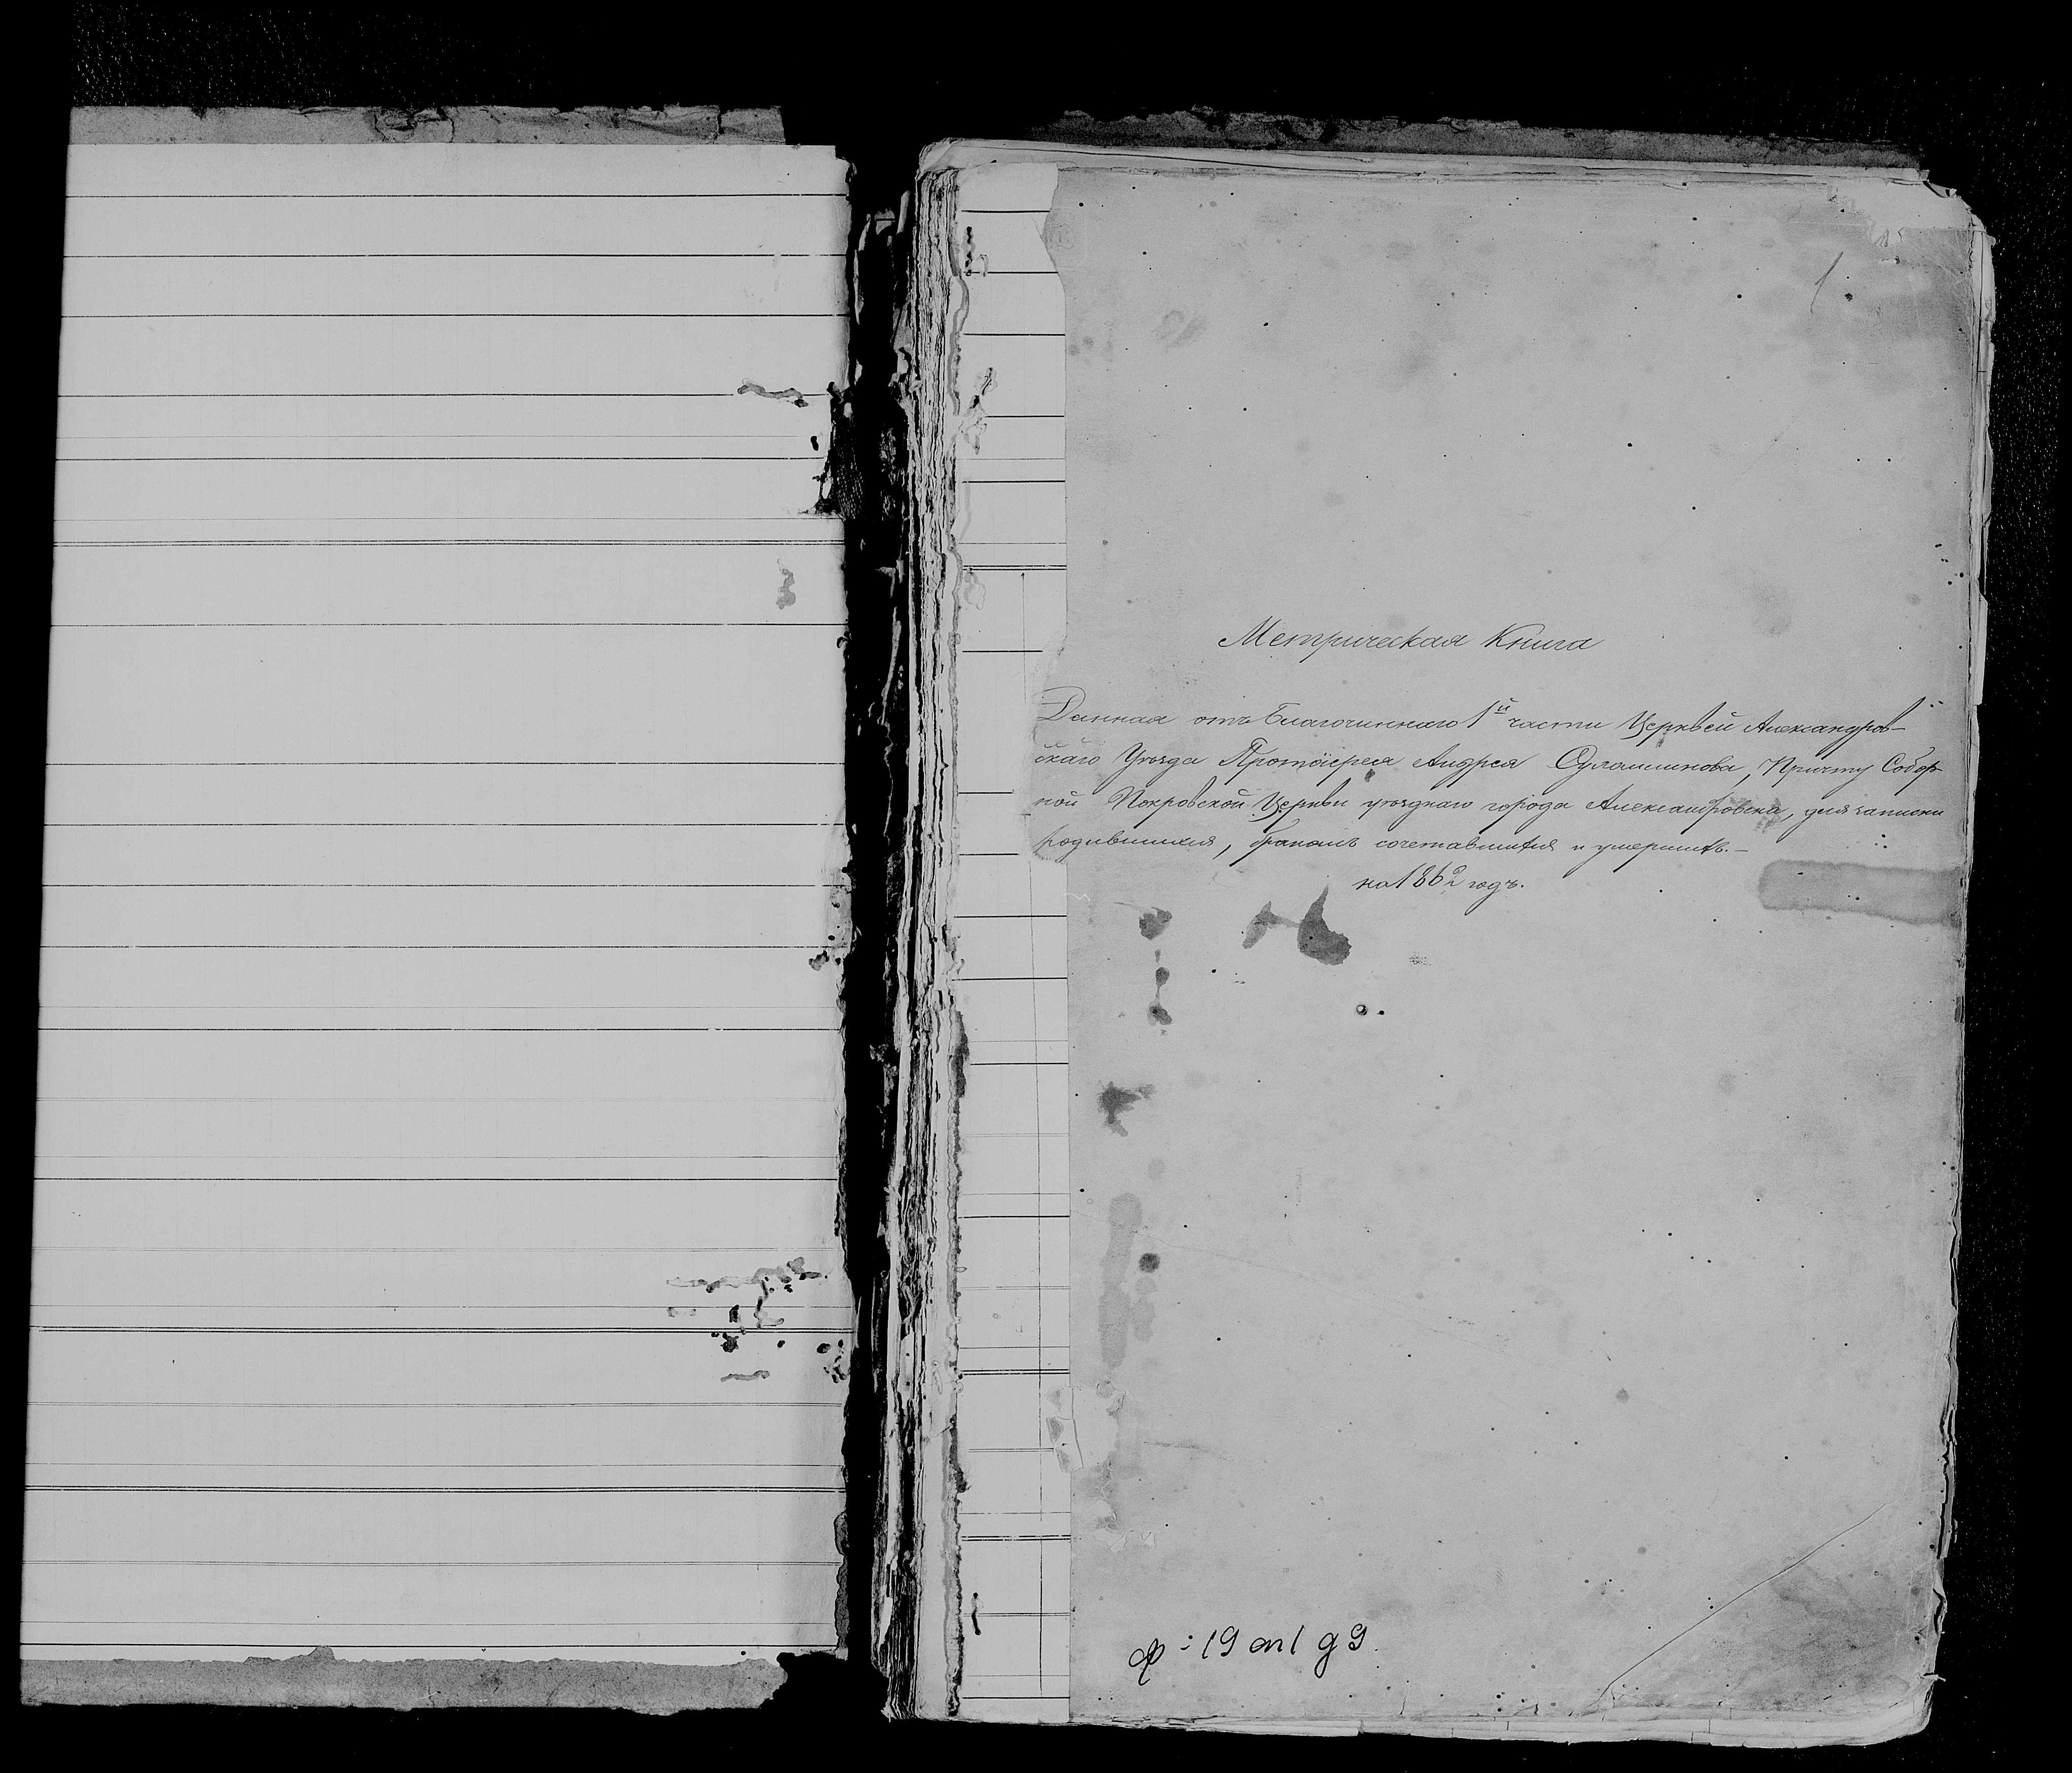 1
Метрическая Книга
Данная отъ Благочиннаго 1й части Церквей Александров-
скаго Уѣзда Протоіерея Андрея Причту Собор-
ной Покровской Церкви уѣзднаго города Александровска, для записки
родившихся, бракомъ сочетавшихся и умершихъ.—
на 1862 годъ.
ф: 19 оп 1 д 9.